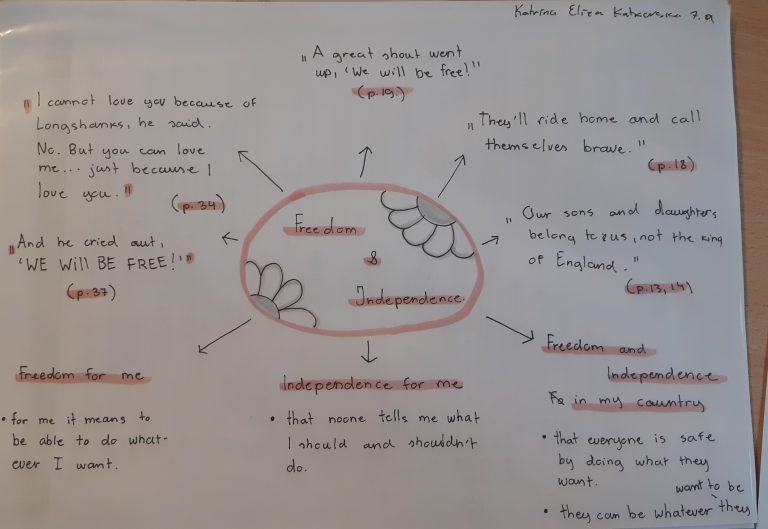 Katrina Eliza 7.a
„A great shout went
up, 'We will be free!"
(p.19.)
"I cannot love you because of
Longshanks, he said.
No. But you can love
me... just because I
love you."
(p.34)
„They'll ride home and call
themselves brave."
(p.18)
„And he cried out,
'WE WILL BE FREE!'"
(p.37)
Freedom
&
Independence
„Our sons and daughters
belong to us, not the king
of England."
(p.13,14)
Freedom for me
• for me it means to
be able to do what-
ever I want.
Independence for me
• that noone tells me what
I should and shouldn't
do.
Freedom and
Independence
in my country
• that everyone is safe
by doing what they
want.
• they can be whatever they
want to be